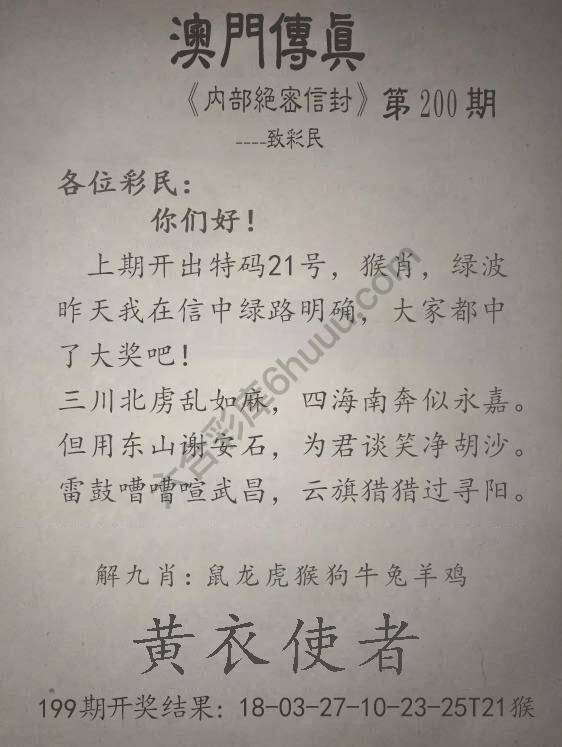 澳門傳真
《内部絕密信封》第200期
----致彩民
各位彩民：
你们好！
上期开出特码21号，猴肖，绿波
昨天我在信中绿路明确，大家都中
了大奖吧！
三川北虏乱如麻，四海南奔似永嘉。
但用东山谢安石，为君谈笑净胡沙。
雷鼓嘈嘈喧武昌，云旗猎猎过寻阳。
六合彩库6huuu.com
解九肖：鼠龙虎猴狗牛兔羊鸡
黄衣使者
199期开奖结果：18-03-27-10-23-25T21猴